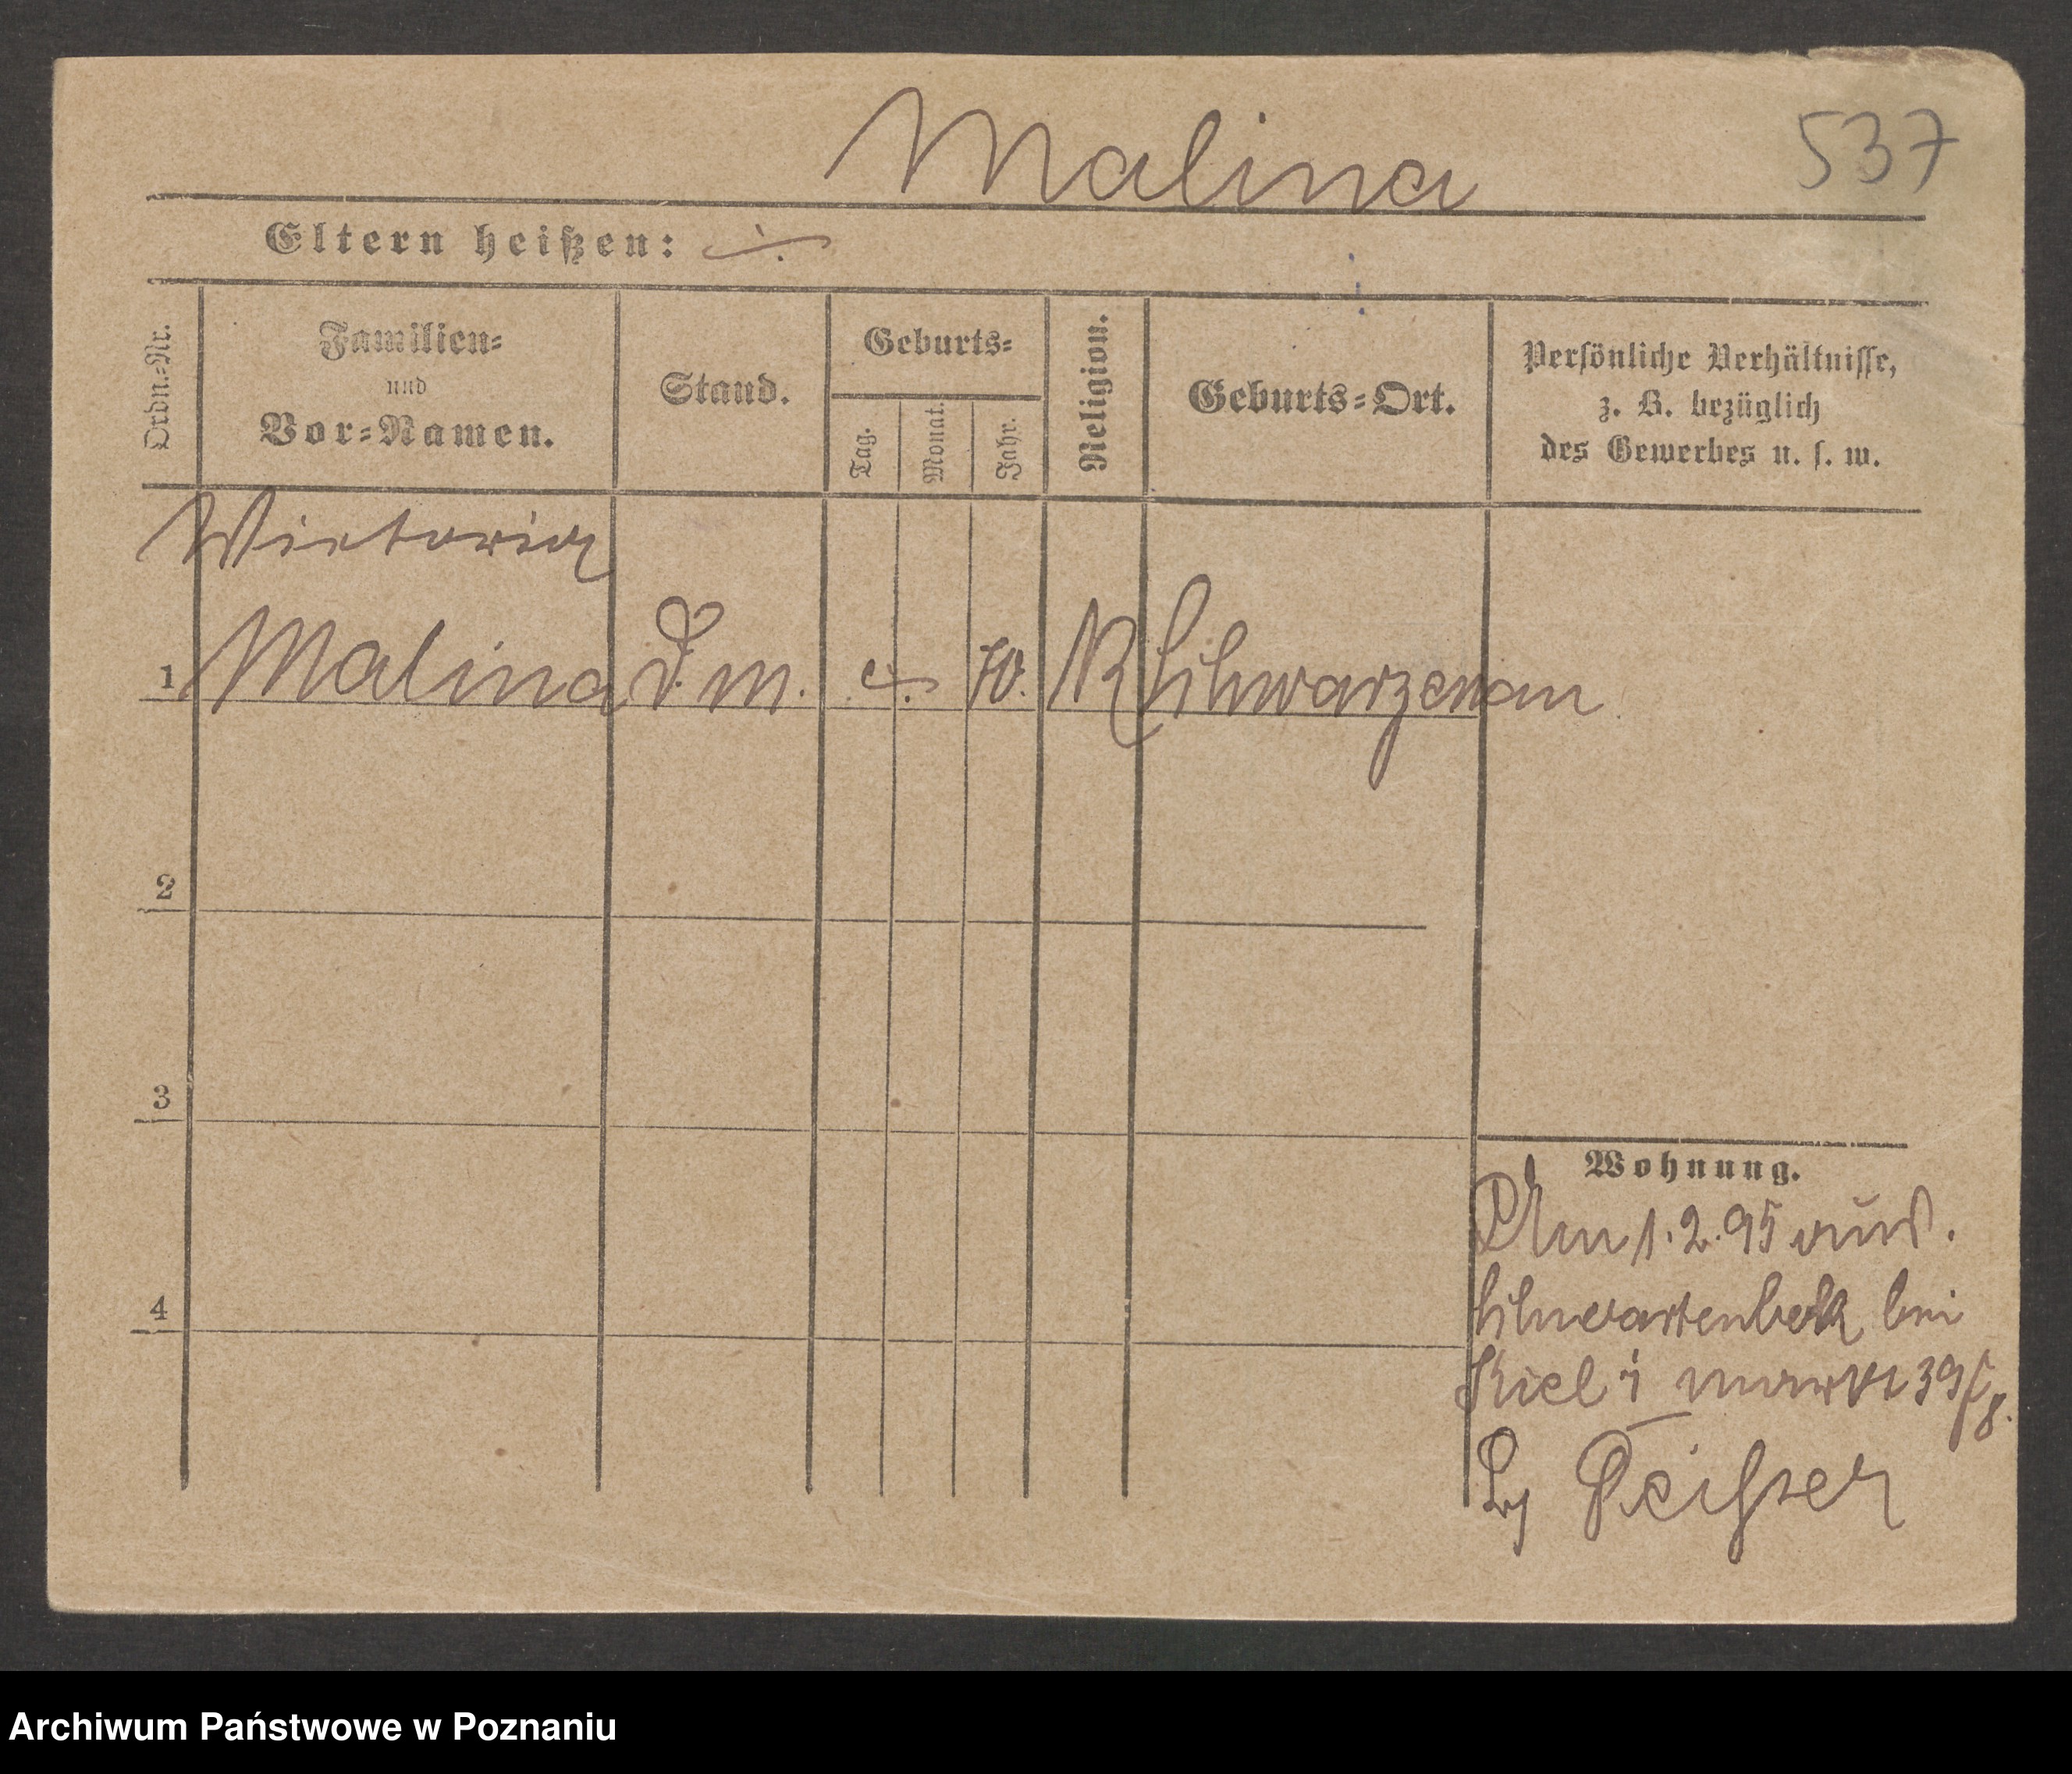 Malina
537
Eltern heißen: ./.
Ordn.-Nr.
Familien=
und
Vor=Namen.
Stand.
Geburts=
Tag.
Monat.
Jahr.
Religion.
Geburts=Ort.
Persönliche Verhältnisse,
z. B. bezüglich
des Gewerbes u. s. w.
Wictoria
1 Malina D. m. ./. 70. K Schwarzenau
2
3
4
Wohnung.
Am 1.2.95 aus.
bei
Kiel 39
Archiwum Państwowe w Poznaniu